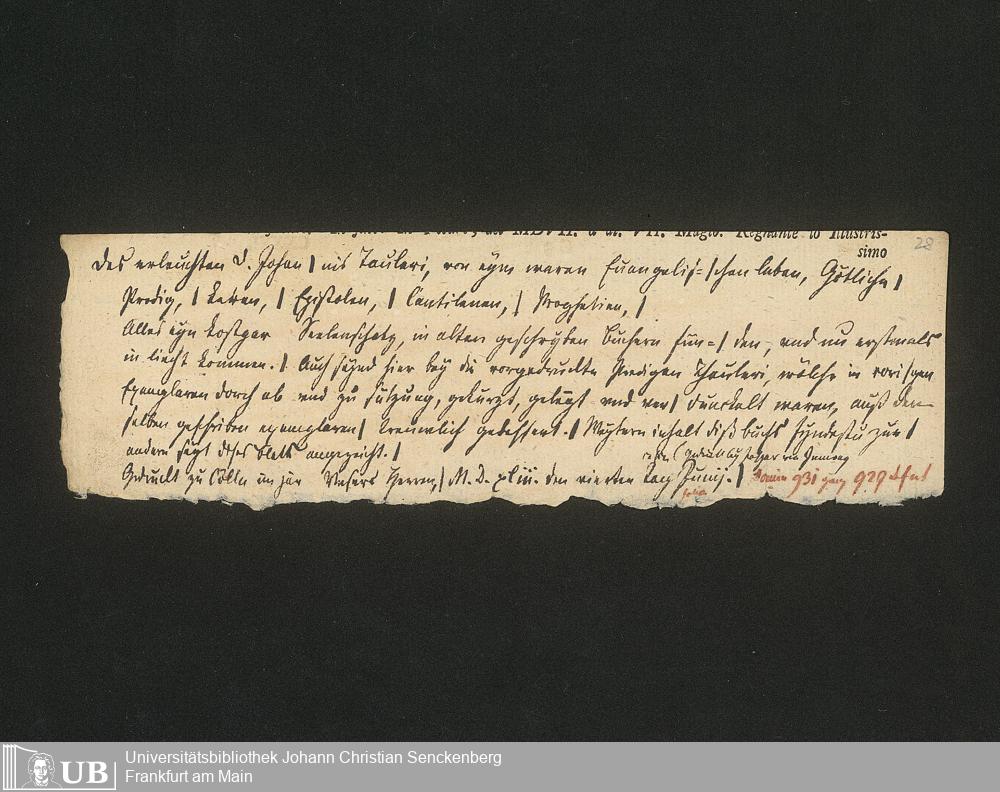 MDVII. Regnante
simo
28
des erleuchten D. Johan | nis Tauleri, von eym waren Euangelis= | chen leben, Götliche |
Predig, | Leren, | Epistolen, | Cantilenen, | Prophetien, |
Alles eyn kostpar Seelenschatz, in alten geschryben Buchern fun= | den, und nu erstmals
in liecht kommen. | Auch seynd hier bey die vorgedruckte Predigen Thauleri, wölche in vori | gen
Exemplaren dorch ab und zu setzung, gekurzt, gelengt und ver | dunckelt waren, auß den
selben geschriben exemplaren | treuwlich gebessert. | Weytern inhalt diß buchs fyndestu zur |
andern seyt dises blats angezeicht. |
Gedruckt zu Cölln im jar Unsers Herren, | M. D. xliii. den vierten tag Junij. |
931 929
Universitätsbibliothek Johann Christian Senckenberg
Frankfurt am Main
UB